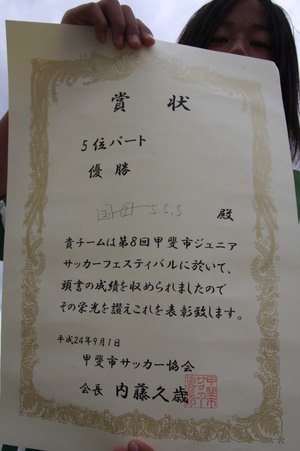 賞状
5位パート
優勝
国母 S.S.S 殿
貴チームは第8回甲斐市ジュニア
サッカーフェスティバルに於いて、
頭書の成績を収められましたので
その栄光を讃えこれを表彰致します。
平成24年9月1日
甲斐市サッカー協会
会長 内藤久歳
甲斐市
サッカー
協会印